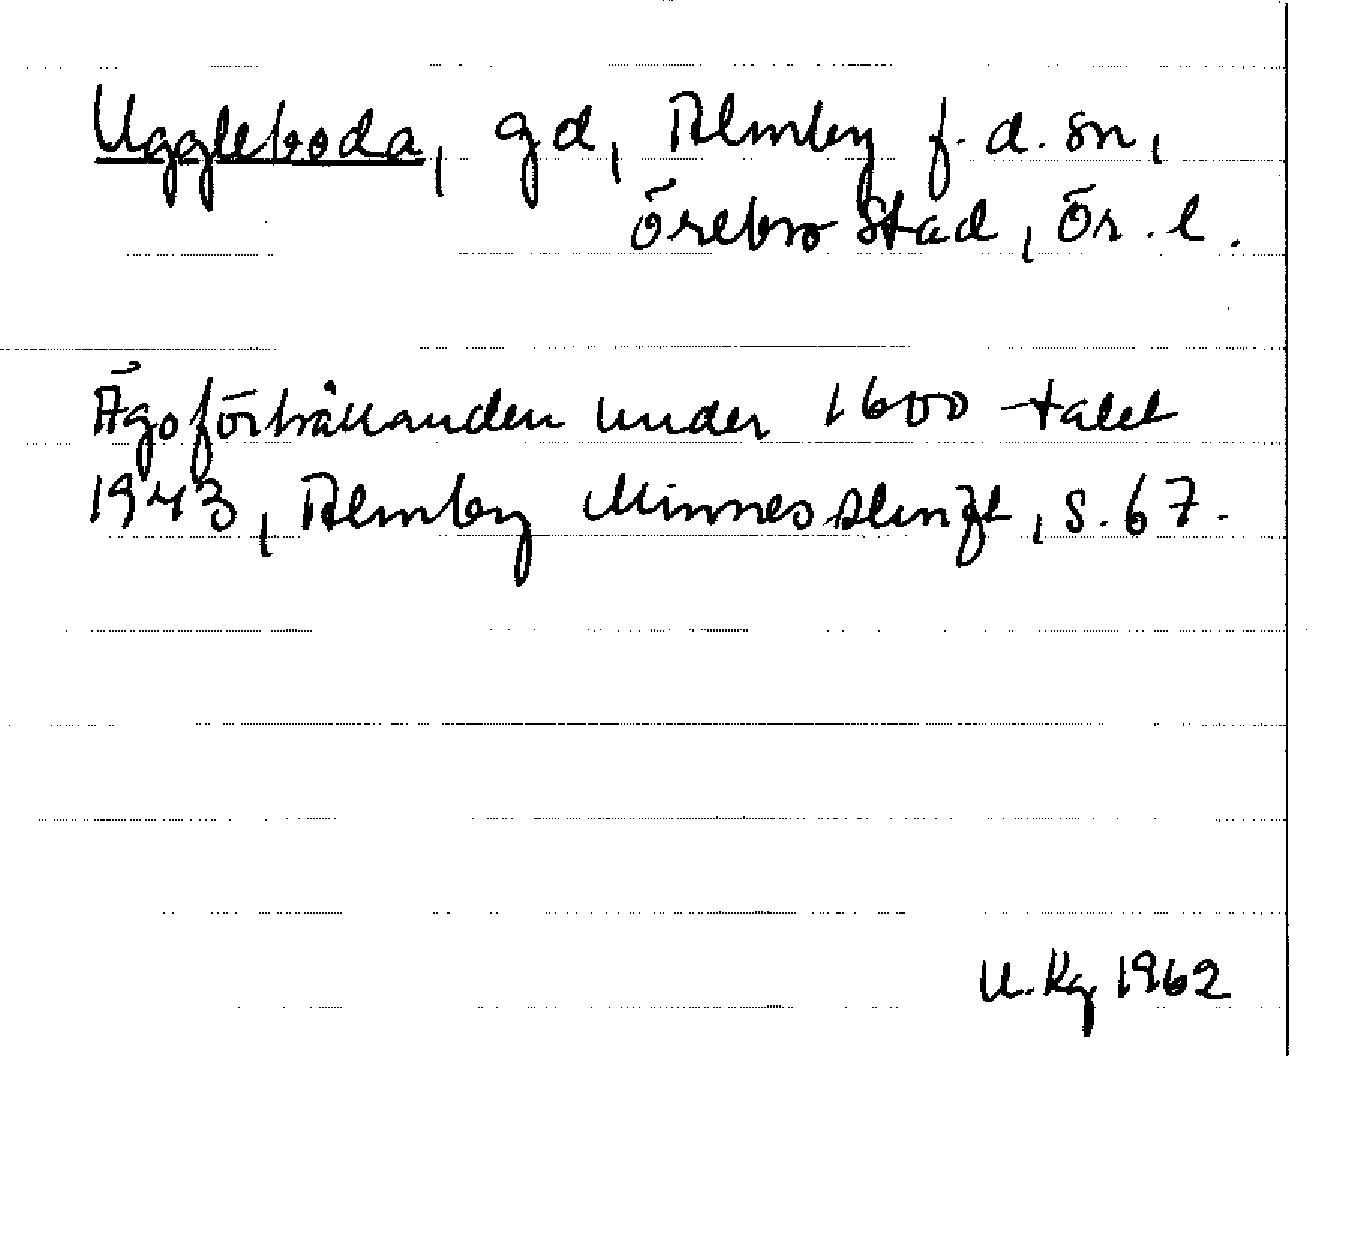 Uggleboda, gd, Almby f.d. sn,
Örebro stad, Ör. l.
Ägoförhållanden under 1600-talet
1943, Almby Minnesskrift, s. 67.
U. Kg 1962